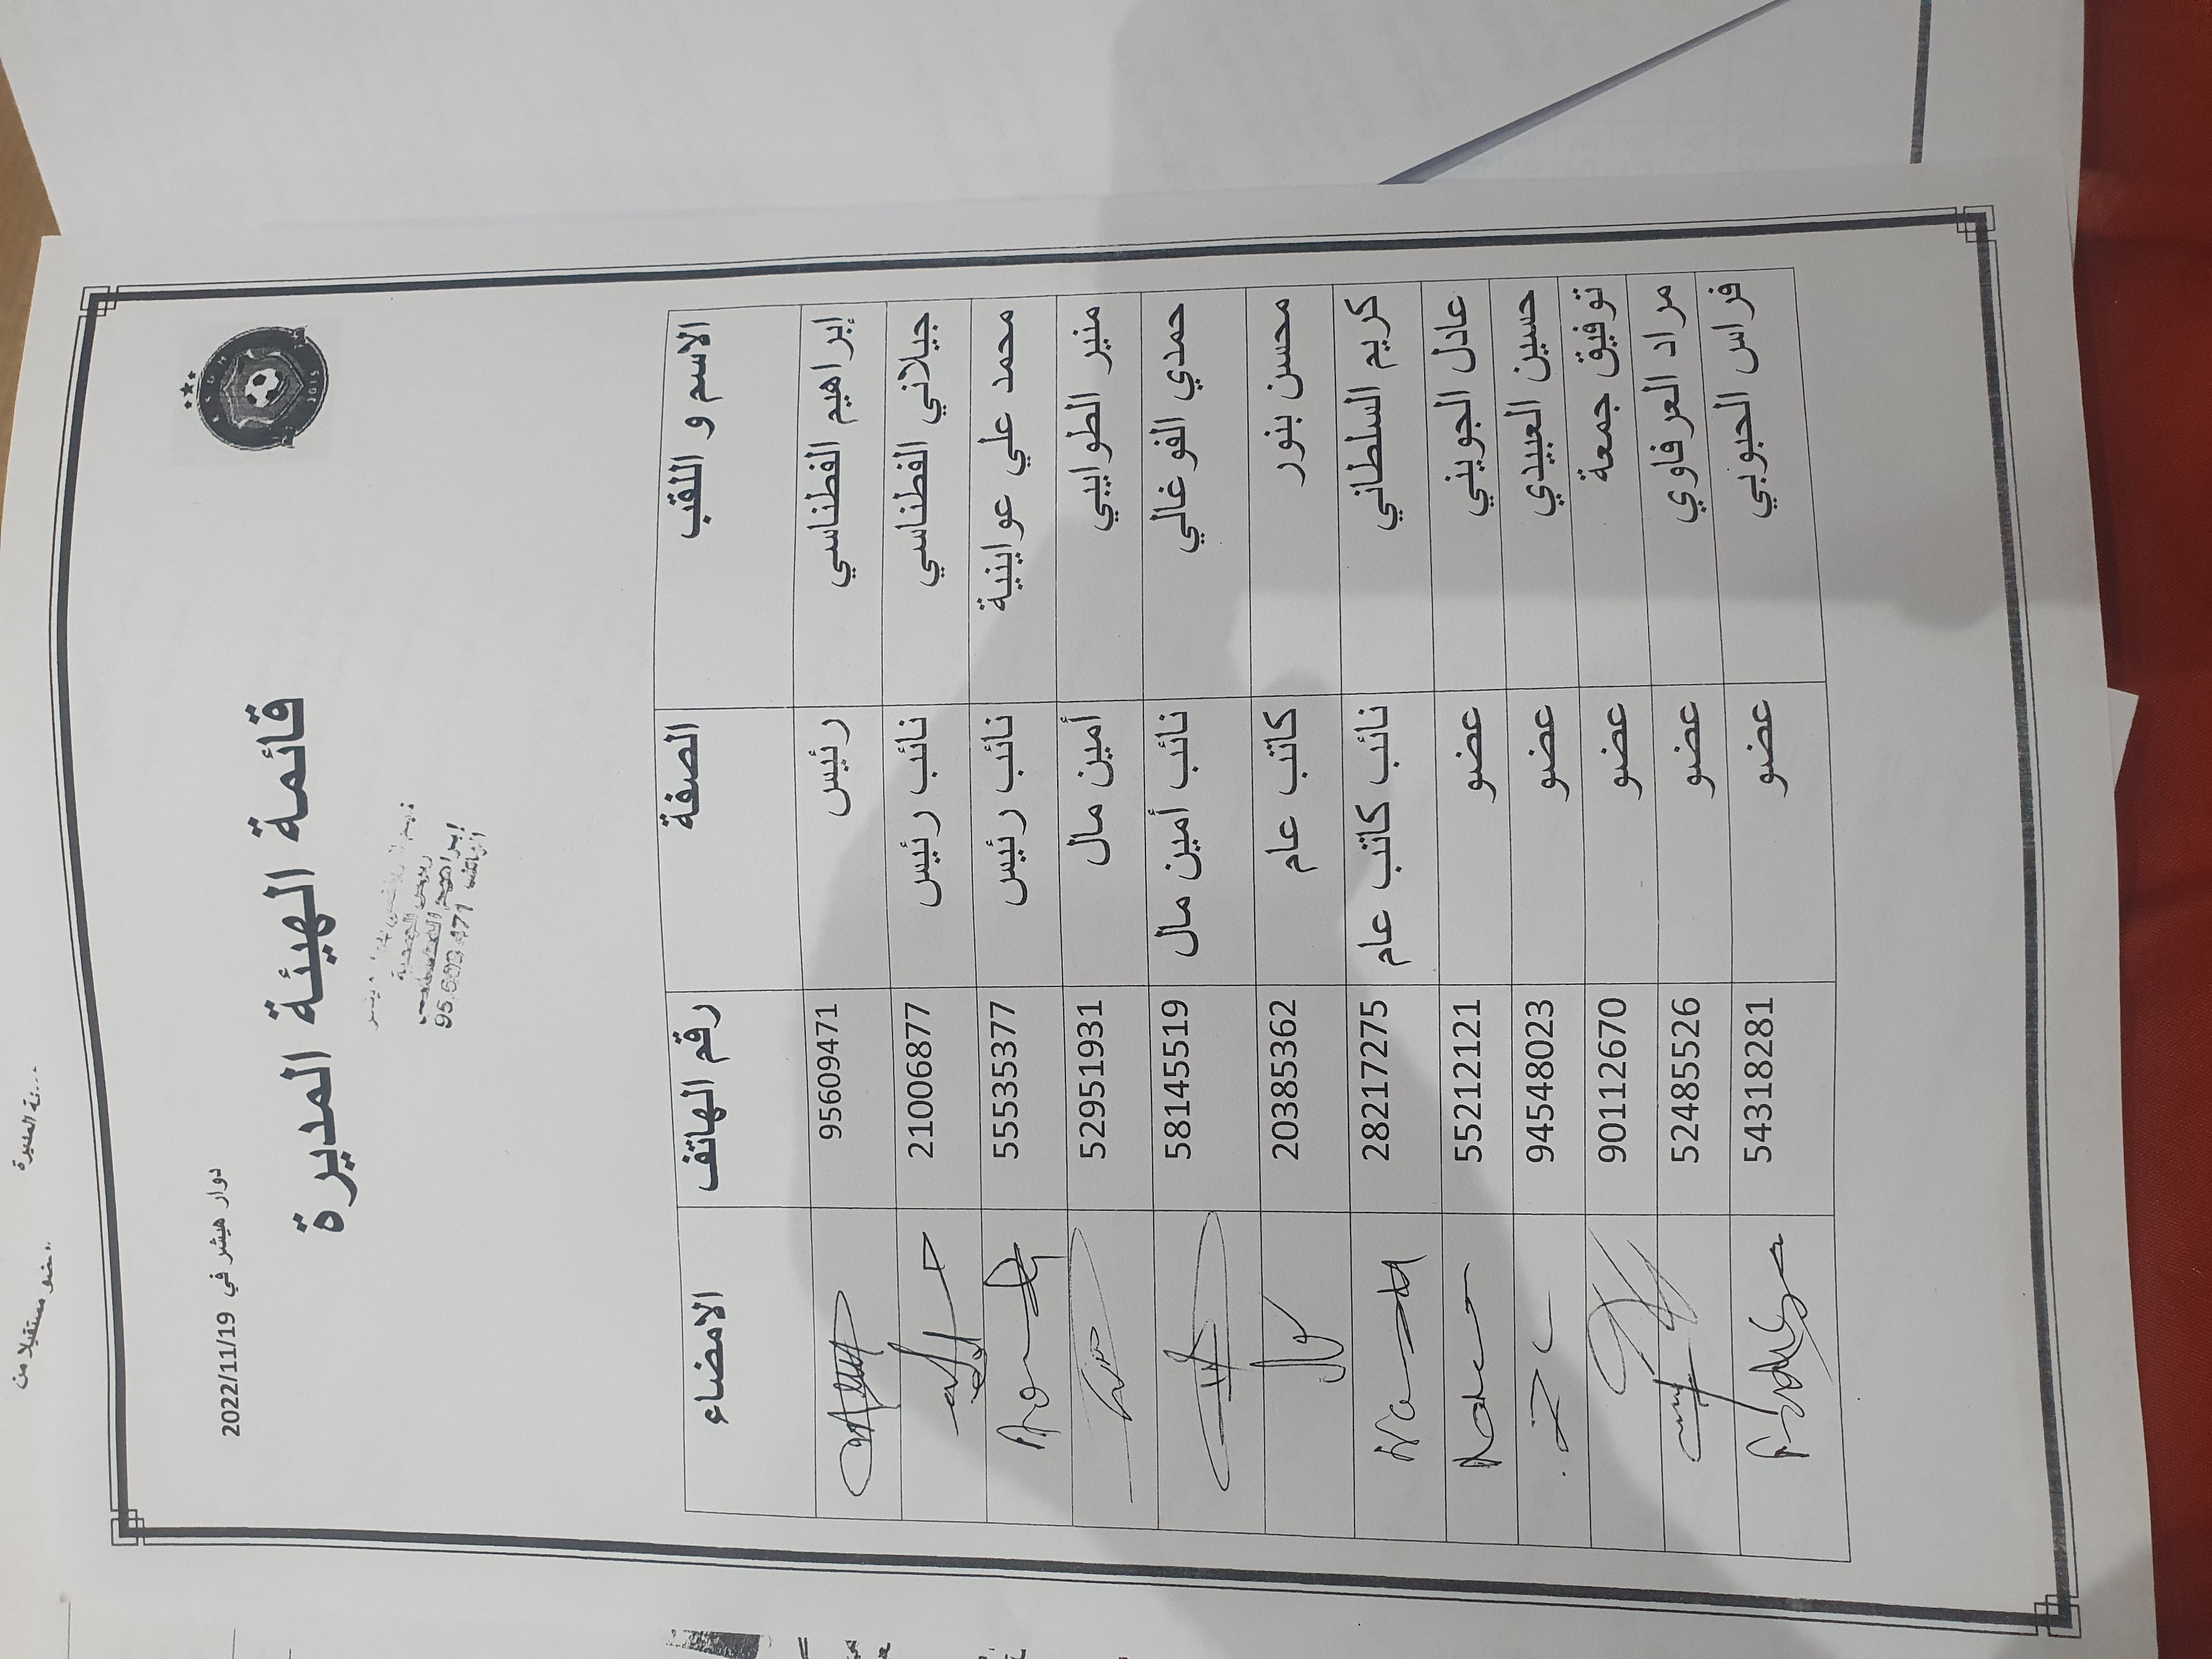 دوار هيشر في 2022/11/19
قائمة الهيئة المديرة
إبراهيم
95.609.471
الاسم و اللقب الصفة رقم الهاتف الامضاء
إبراهيم الفطناسي رئيس 95609471
جيلاني الفطناسي نائب رئيس 21006877
محمد علي عواينية نائب رئيس 55535377
منير الطوايبي أمين مال 52951931
حمدي الفوغالي نائب أمين مال 58145519
محسن بنور كاتب عام 20385362
كريم السلطاني نائب كاتب عام 28217275
عادل الجويني عضو 55212121
حسين العبيدي عضو 94548023
توفيق جمعة عضو 90112670
مراد العرفاوي عضو 52485526
فراس الحبوبي عضو 54318281
2015